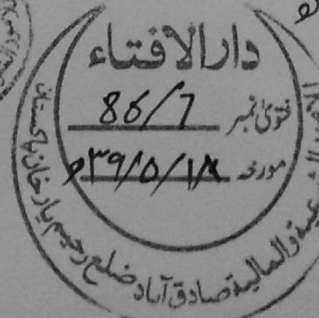 دارالافتاء
فتویٰ نمبر 86/7
مورخہ ۳۹/۵/۱۸ھ
والمالیۃ صادق آباد ضلع رحیم یار خان پاکستان